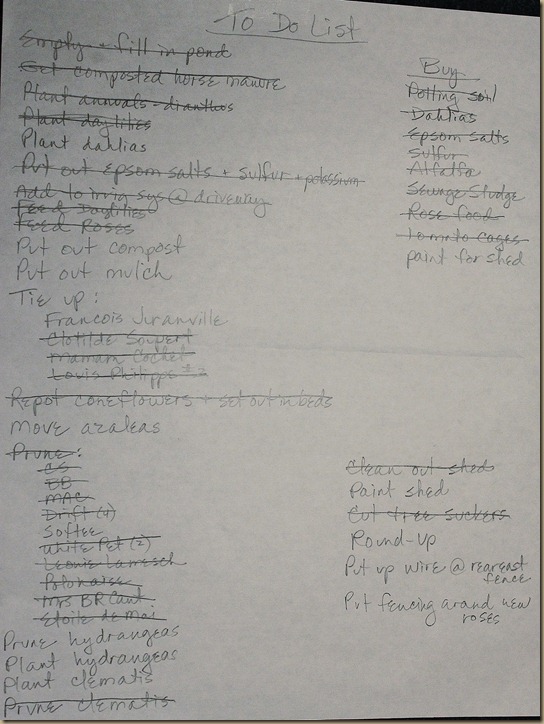 To Do List
Empty + fill in pond
Get composted horse manure
Plant annuals - dianthus
Plant daylilies
Plant dahlias
Put out epsom salts + sulfur + potassium
Add to irrig sys @ driveway
Feed Daylilies
Feed Roses
Put out compost
Put out mulch
Tie up:
Francois Juranville
Clotilde Soupert
Mamam Cochet
Louis Philippe # 2
Repot coneflowers + set out in beds
Move azaleas
Prune:
CS
BB
MAC
Drift (4)
Softee
White Pet (2)
Leonie Lamesch
Polonaise
Mrs BR Cant
Etoile de Mai
Prune hydrangeas
Plant hydrangeas
Plant clematis
Prune clematis
Buy
Potting soil
Dahlias
Epsom salts
Sulfur
Alfalfa
Sewage Sludge
Rose food
Tomato Cages
paint for shed
Clean out shed
Paint shed
Cut tree suckers
Round-up
Put up wire @ reareast
fence
Put fencing around new
roses